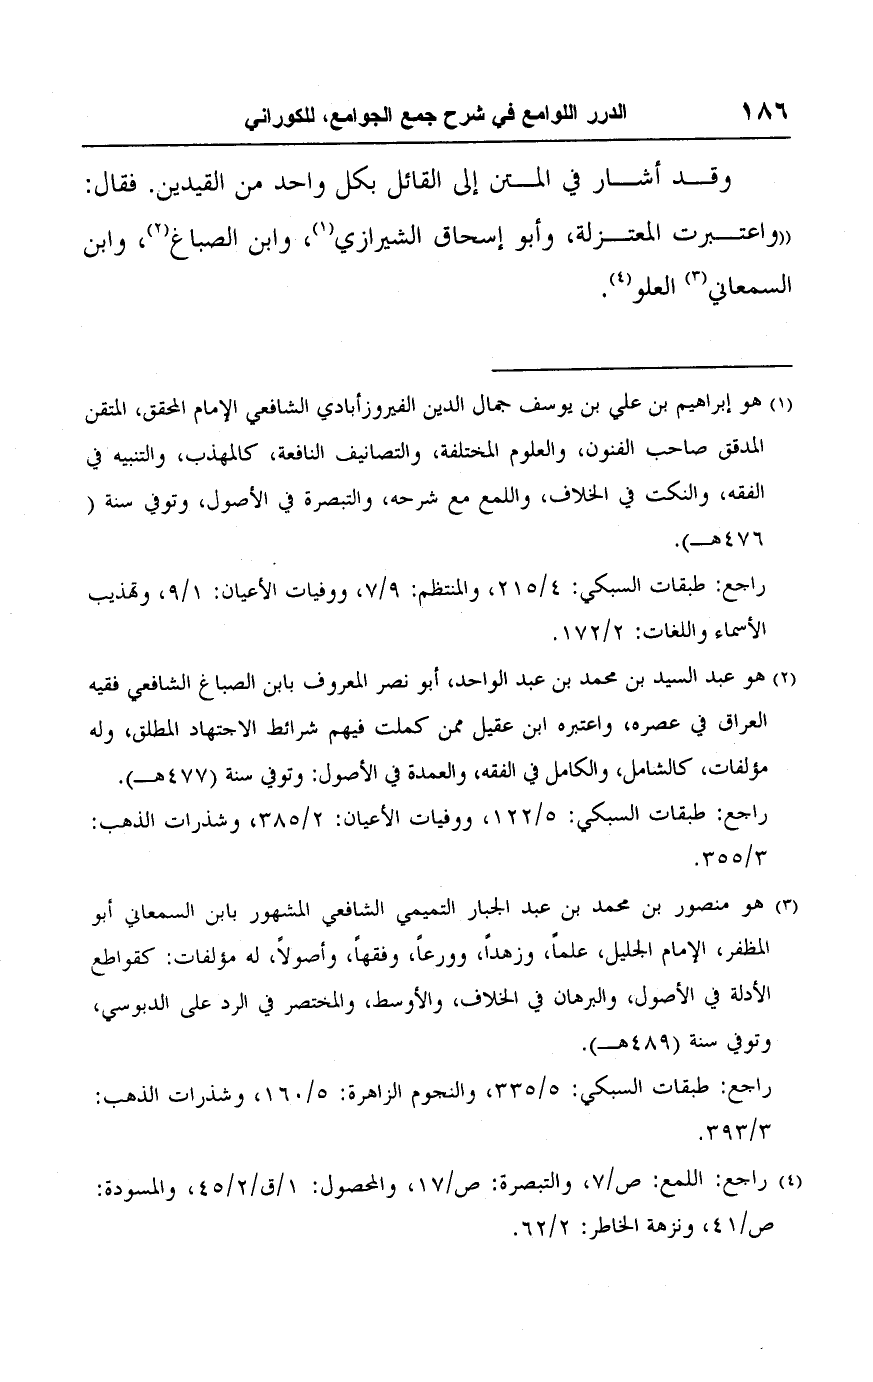 ١٨٦ الدرر اللوامع في شرح جمع الجوامع، للكوراني
وقـــد أشـــار في المـــتن إلى القائل بكل واحد من القيدين. فقال:
((واعتـــبرت المعتـــزلة، وأبو إسحاق الشيرازي(١)، وابن الصباغ(٢)، وابن
السمعاني(٣) العلو(٤).
(١) هو إبراهيم بن علي بن يوسف جمال الدين الفيروزأبادي الشافعي الإمام المحقق، المتقن
المدقق صاحب الفنون، والعلوم المختلفة، والتصانيف النافعة، كالمهذب، والتنبيه في
الفقه، والنكت في الخلاف، واللمع مع شرحه، والتبصرة في الأصول، وتوفي سنة (
٤٧٦هــ).
راجع: طبقات السبكي: ٢١٥/٤، والمنتظم: ٧/٩، ووفيات الأعيان: ٩/١، وتهذيب
الأسماء واللغات: ١٧٢/٢.
(٢) هو عبد السيد بن محمد بن عبد الواحد، أبو نصر المعروف بابن الصباغ الشافعي فقيه
العراق في عصره، واعتبره ابن عقيل ممن كملت فيهم شرائط الاجتهاد المطلق، وله
مؤلفات، كالشامل، والكامل في الفقه، والعمدة في الأصول: وتوفي سنة (٤٧٧هــ).
راجع: طبقات السبكي: ١٢٢/٥، ووفيات الأعيان: ٣٨٥/٢، وشذرات الذهب:
٣٥٥/٣.
(٣) هو منصور بن محمد بن عبد الجبار التميمي الشافعي المشهور بابن السمعاني أبو
المظفر، الإمام الجليل، علماً، وزهداً، وورعاً، وفقهاً، وأصولاً، له مؤلفات: كقواطع
الأدلة في الأصول، والبرهان في الخلاف، والأوسط، والمختصر في الرد على الدبوسي،
وتوفي سنة (٤٨٩هــ).
راجع: طبقات السبكي: ٣٣٥/٥، والنجوم الزاهرة: ١٦٠/٥، وشذرات الذهب:
٣٩٣/٣.
(٤) راجع: اللمع: ص/٧، والتبصرة: ص/١٧، والمحصول: ١/ق/٤٥/٢، والمسودة:
ص/٤١، ونزهة الخاطر: ٦٢/٢.